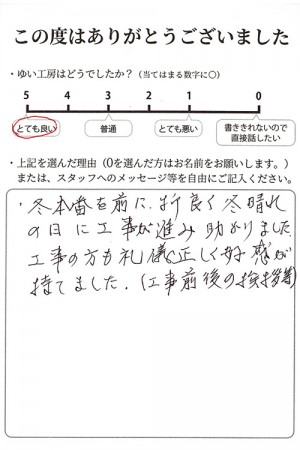 この度はありがとうございました
・ゆい工房はどうでしたか？（当てはまる数字に○）
5 4 3 2 1 0
とても良い 普通 とても悪い 書ききれないので直接話したい
・上記を選んだ理由（0を選んだ方はお名前をお願いします。）
または、スタッフへのメッセージ等を自由にご記入ください。
・冬本番を前に、折良く冬晴れ
の日に工事が進み助かりました
工事の方も礼儀正しく好感が
持てました。（工事前後の挨拶等）